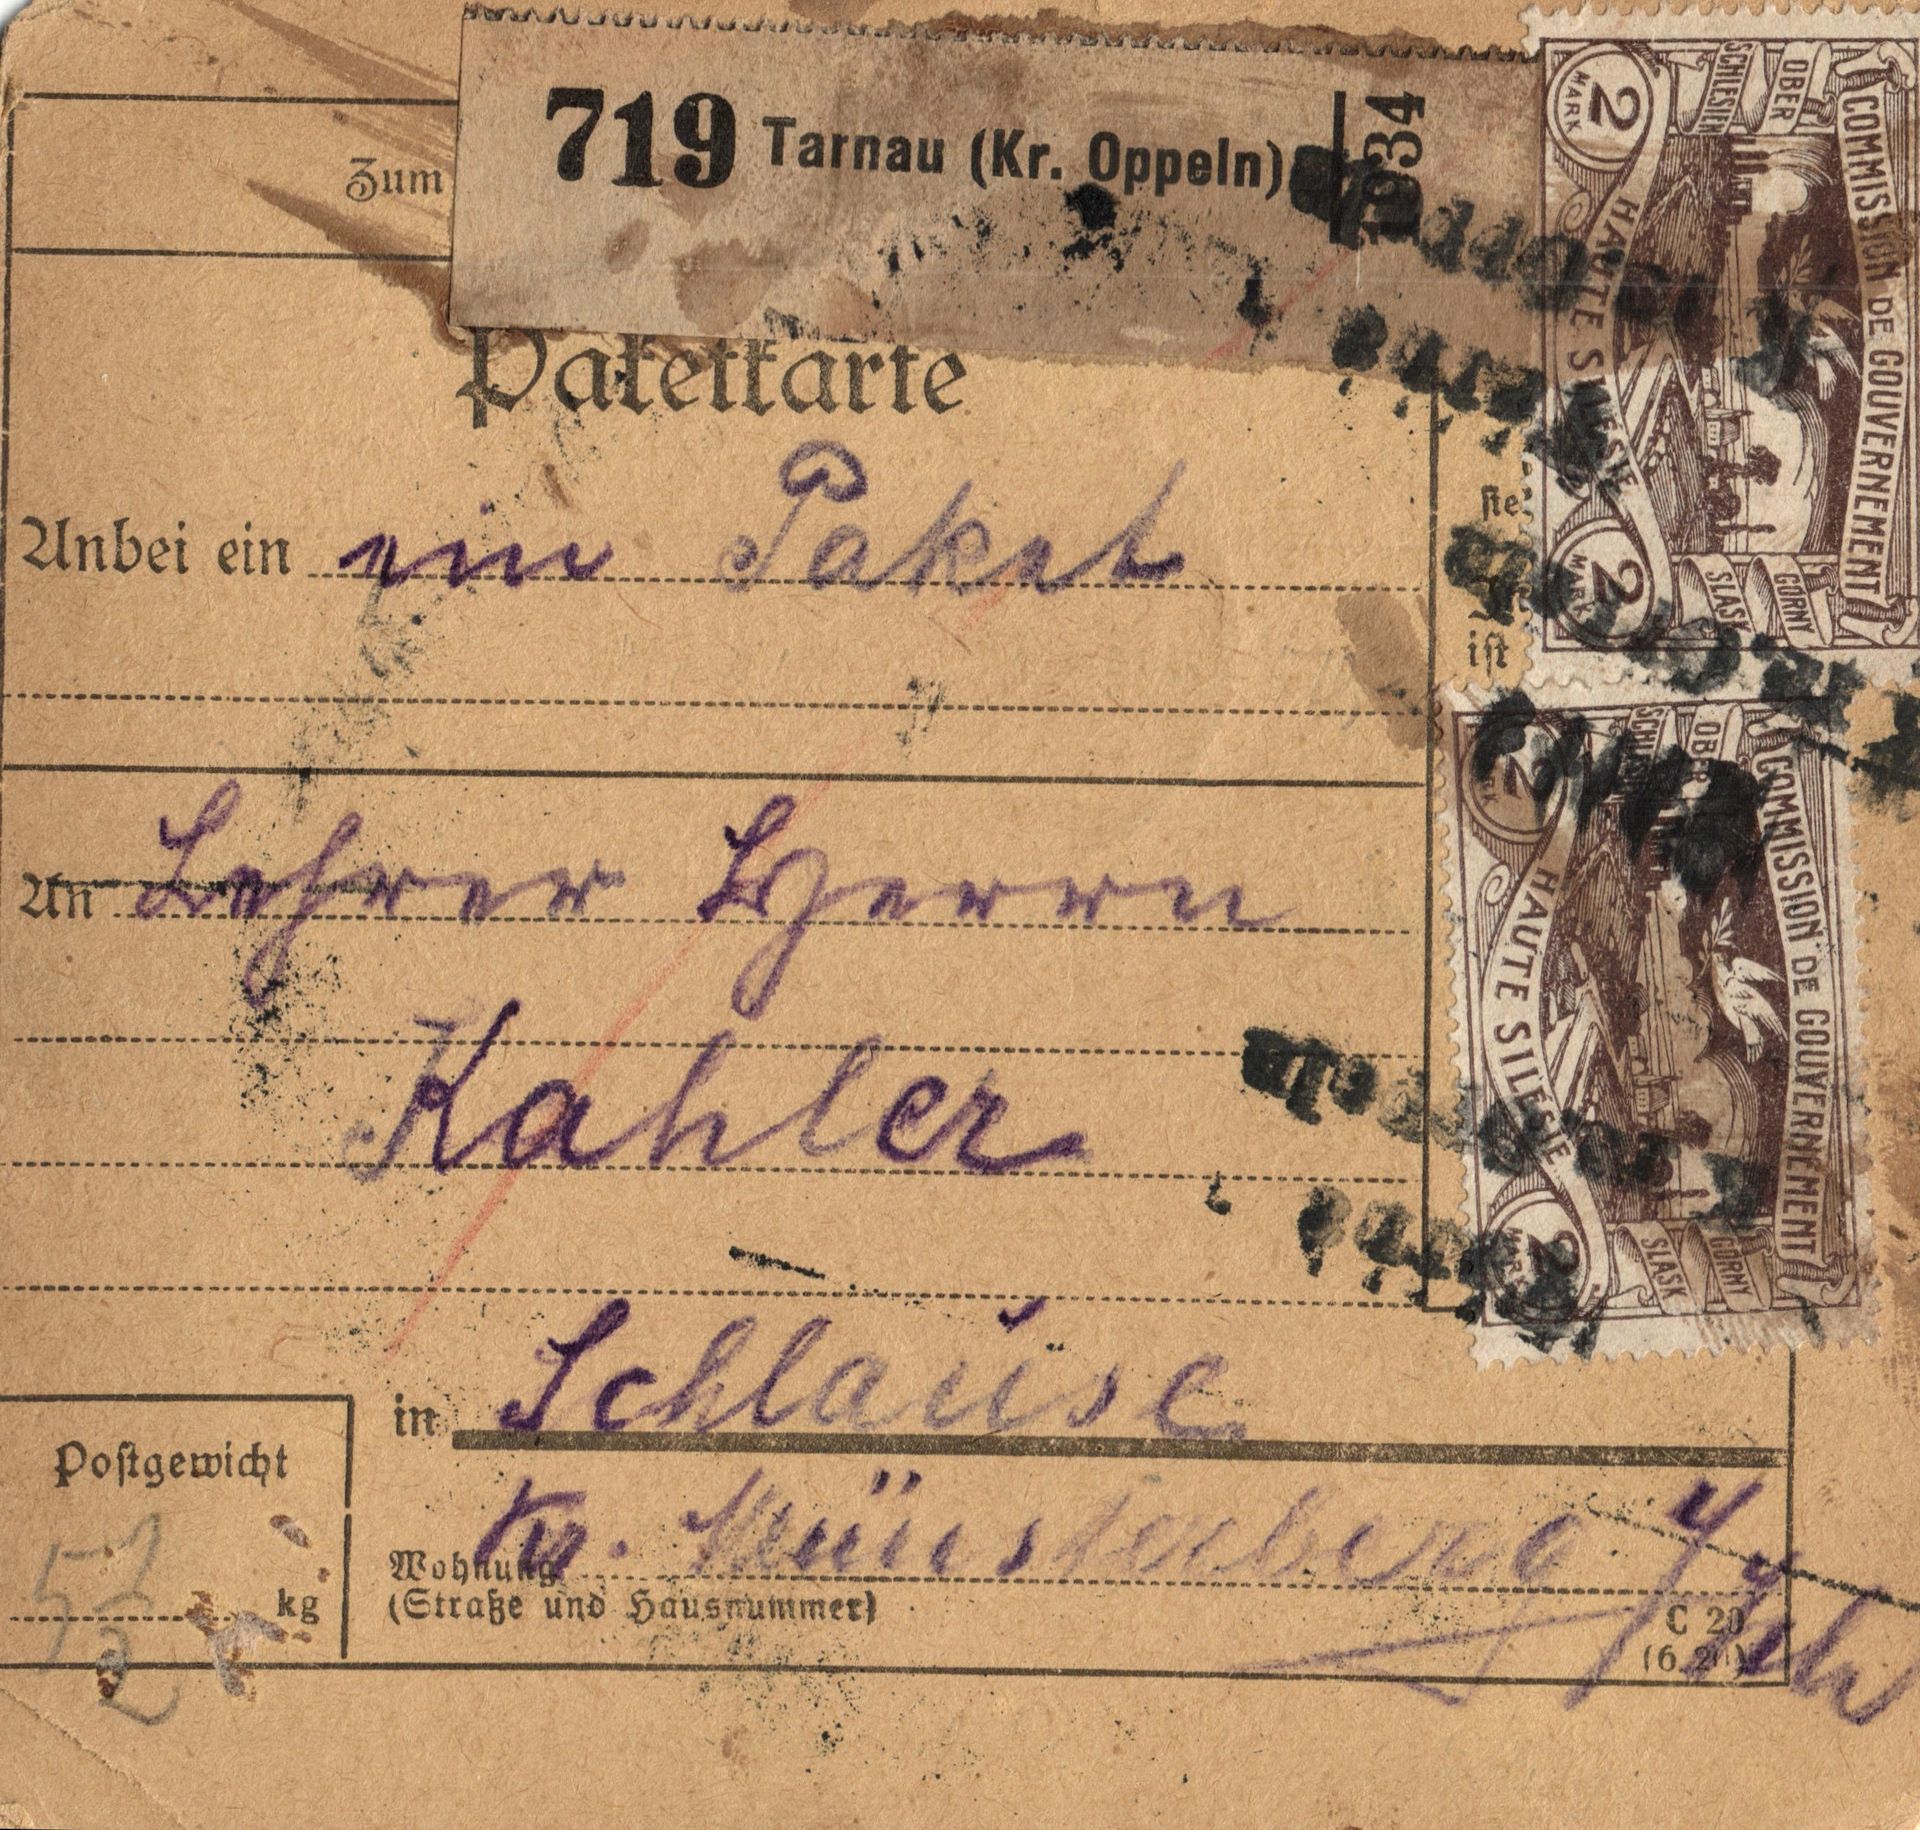 719 Tarnau (Kr. Oppeln)
1934
Zum
Paketkarte
Anbei ein ein Paket
ist
An Lehrer Herrn
Kahler
in Schlause
Kr. Münsterberg
Postgewicht
5 1/2 kg
Wohnung
(Straße und Hausnummer)
C 20
(6. 20)
COMMISSION DE GOUVERNEMENT
OBER
SCHLESIEN
HAUTE SILESIE
GORNY
SLASK
2
MARK
2
MARK
COMMISSION DE GOUVERNEMENT
OBER
SCHLESIEN
HAUTE SILESIE
GORNY
SLASK
2
MARK
2
MARK